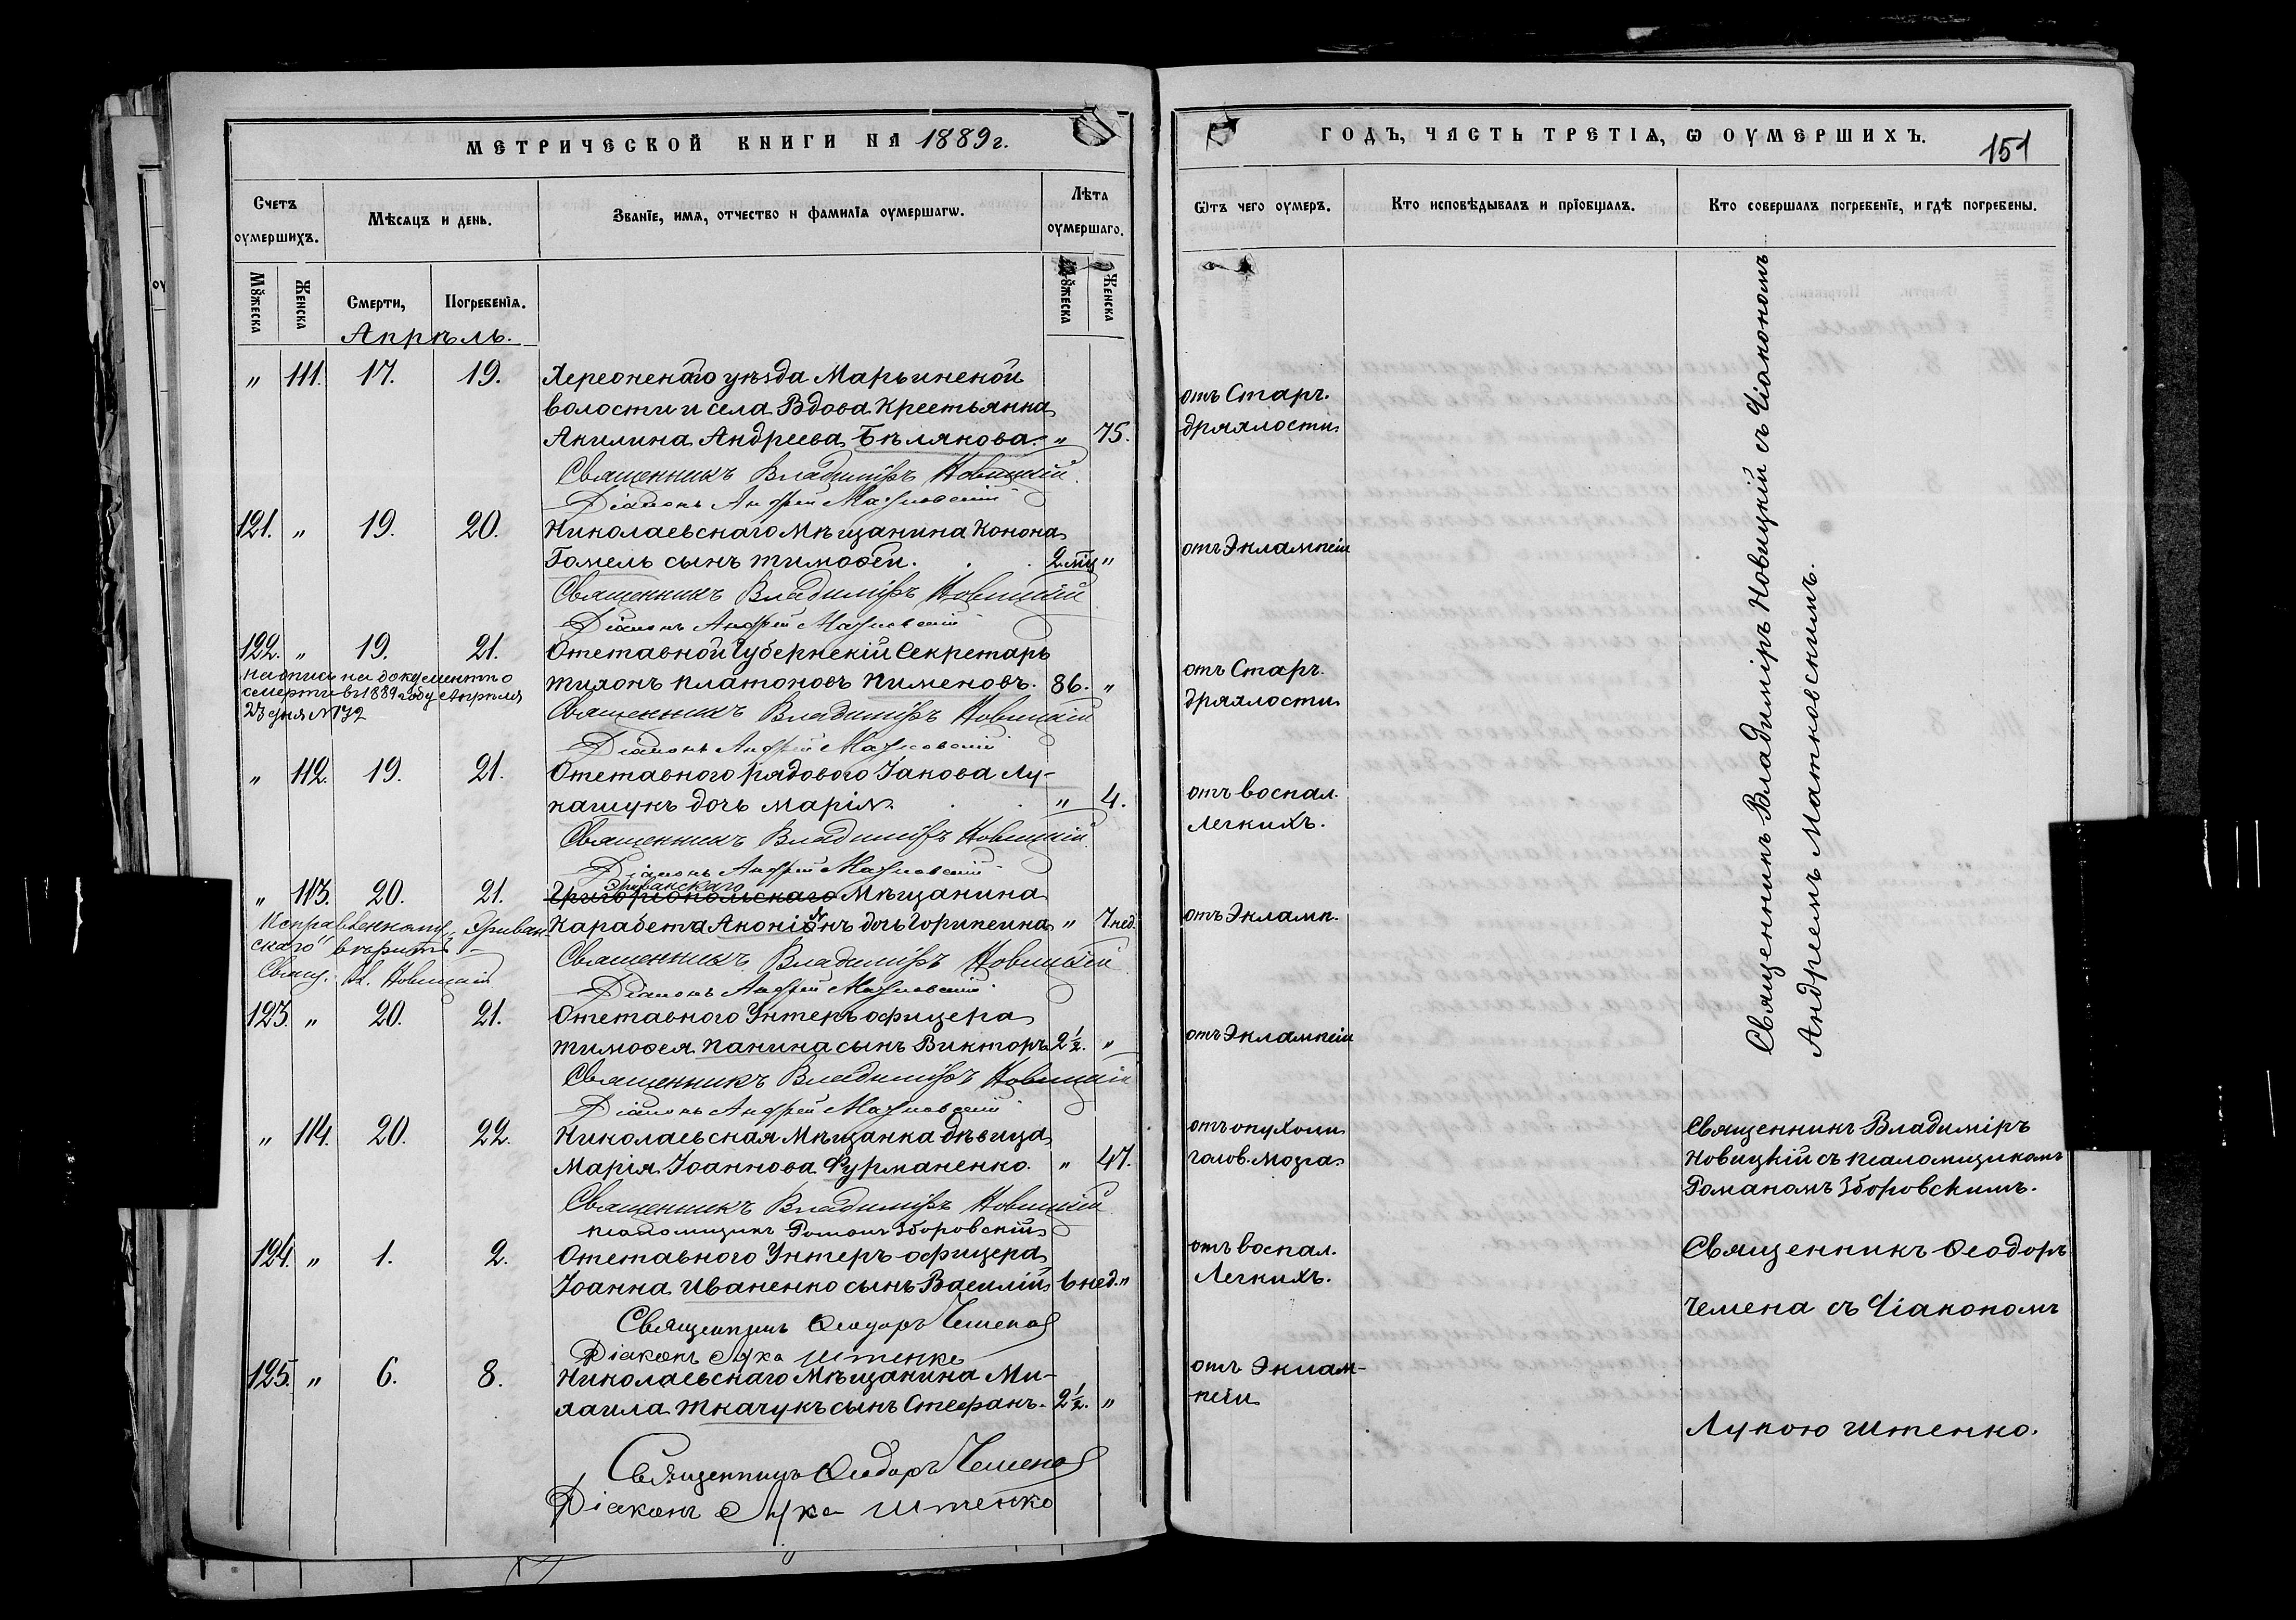 МЕТРИЧЕСКОЙ КНИГИ НА 1889 г.
Счетъ оумершихъ.
Мѣсяцъ и день.
Званїе, имя, отчество и фамилїя оумершагѡ.
Лѣта оумершаго.
Мꙋжеска
Женска
Смерти,
Погребенїя.
Мꙋжеска
Женска
Апрѣль.
" 111. 17. 19. Херсонскаго уѣзда Марьинской
волости и села Вдова Крестьянка
Акилина Андреева Бѣлякова. " 75.
Священникъ Владиміръ Новицкій
Діаконъ Андрей Матковскій
121. " 19. 20. Николаевскаго Мѣщанина Конона
Гомель сынъ Тимоѳей. 2 мц "
Священникъ Владиміръ Новицкій
Діаконъ Андрей Матковскій
122. " 19. 21. Отставной Губернскій Секретарь
Тихонъ Платоновъ Пименовъ. 86. "
надпись на документѣ о
смерти въ 1889 году Апрѣля
23 дня № 172
Священникъ Владиміръ Новицкій
Діаконъ Андрей Матковскій
" 112. 19. 21. Отставного рядового Іакова Лу-
кашукъ дочь Марія. " 4.
Священникъ Владиміръ Новицкій
Діаконъ Андрей Матковскій
Эриванскаго
" 113. 20. 21. Григоріопольскаго Мѣщанина
Карабета Аконі нъ дочь Горипсина " 7 нед.
Исправленному „Эриван
скаго" вѣрить
Свящ. Вл. Новицкій
Священникъ Владиміръ Новицкій
Діаконъ Андрей Матковскій
123. " 20. 21. Отставного Унтеръ офицера
Тимоѳея Панина сынъ Викторъ 2½. "
Священникъ Владиміръ Новицкій
Діаконъ Андрей Матковскій
" 114. 20. 22. Николаевская Мѣщанка дѣвица
Марія Іоаннова Фурманенко. " 47.
Священникъ Владиміръ Новицкій
псаломщикъ Романъ Зборовскій
124. " 1. 2. Отставного Унтеръ-офицера
Іоанна Иваненко сынъ Василій 6 нед. "
Священникъ Ѳеодоръ Чемена
Діаконъ Лука Штенко
125. " 6. 8. Николаевскаго Мѣщанина Ми-
хаила Ткачукъ сынъ Стефанъ. 2½. "
Священникъ Ѳеодоръ Чемена
Діаконъ Лука Штенко
ГОДЪ, ЧАСТЬ ТРЕТІЯ, Ѡ ОУМЕРШИХЪ.
151
Ѿтъ чего оумеръ.
Кто исповѣдывалъ и прїобщалъ.
Кто совершалъ погребенїе, и гдѣ погребены.
отъ Старч.
дряхлости
отъ Эклампсіи
отъ Старч.
дряхлости
отъ воспал.
легкихъ.
отъ Эклампс.
отъ Эклампсіи
отъ опухоли
голов. мозга
отъ воспал.
Легкихъ.
отъ Эклам-
псіи
Священникъ Владиміръ Новицкій съ Діакономъ
Андреемъ Матковскимъ.
Священникъ Владиміръ
Новицкій съ псаломщикомъ
Романомъ Зборовскимъ.
Священникъ Ѳеодоръ
Чемена съ Діакономъ
Лукою Штенко.